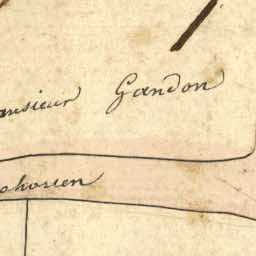 ansieur Gandon
chorien